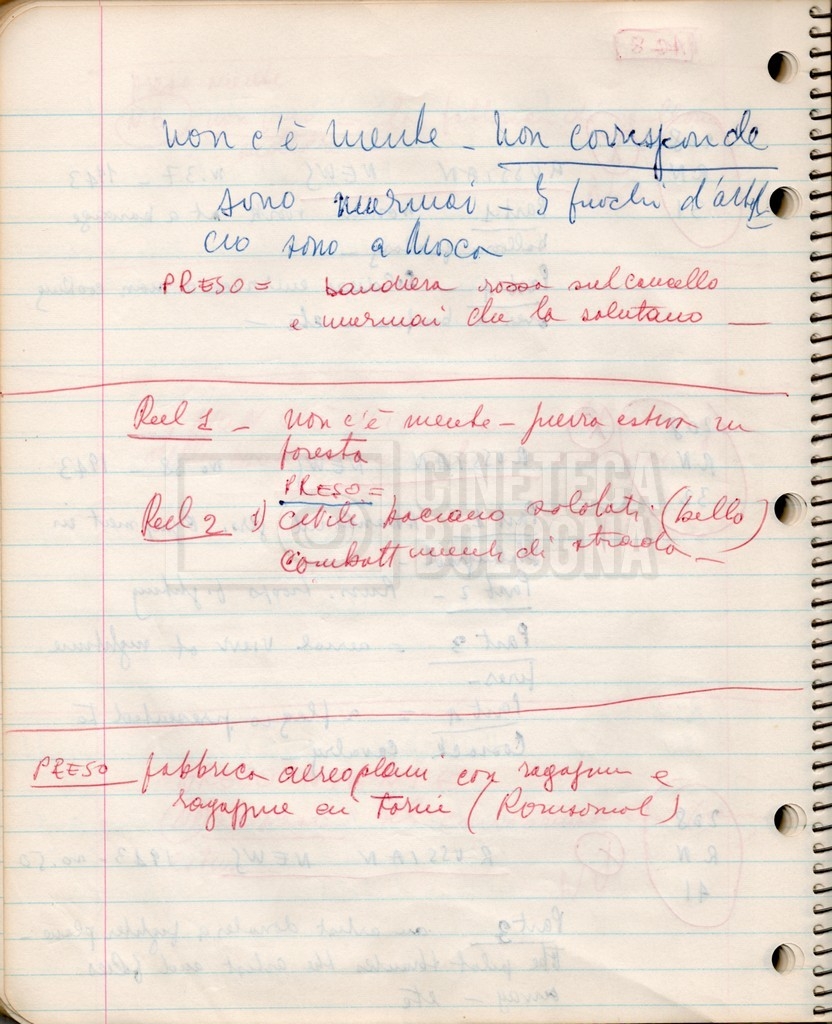 non c'è niente - non corrisponde
sono marinai - 5 fuochi d'artifi
cio sono a Mosca
PRESO = bandiera rossa sul cancello
e marinai che la salutano —
Reel 1 - non c'è niente - guerra estiva in
foresta
PRESO =
Reel 2 1) civili baciano soldati. (bello)
combattimenti di strada —
CINETECA
BOLOGNA
PRESO fabbrica aereoplani con ragazzini e
ragazzine ai torni (Komsomol)